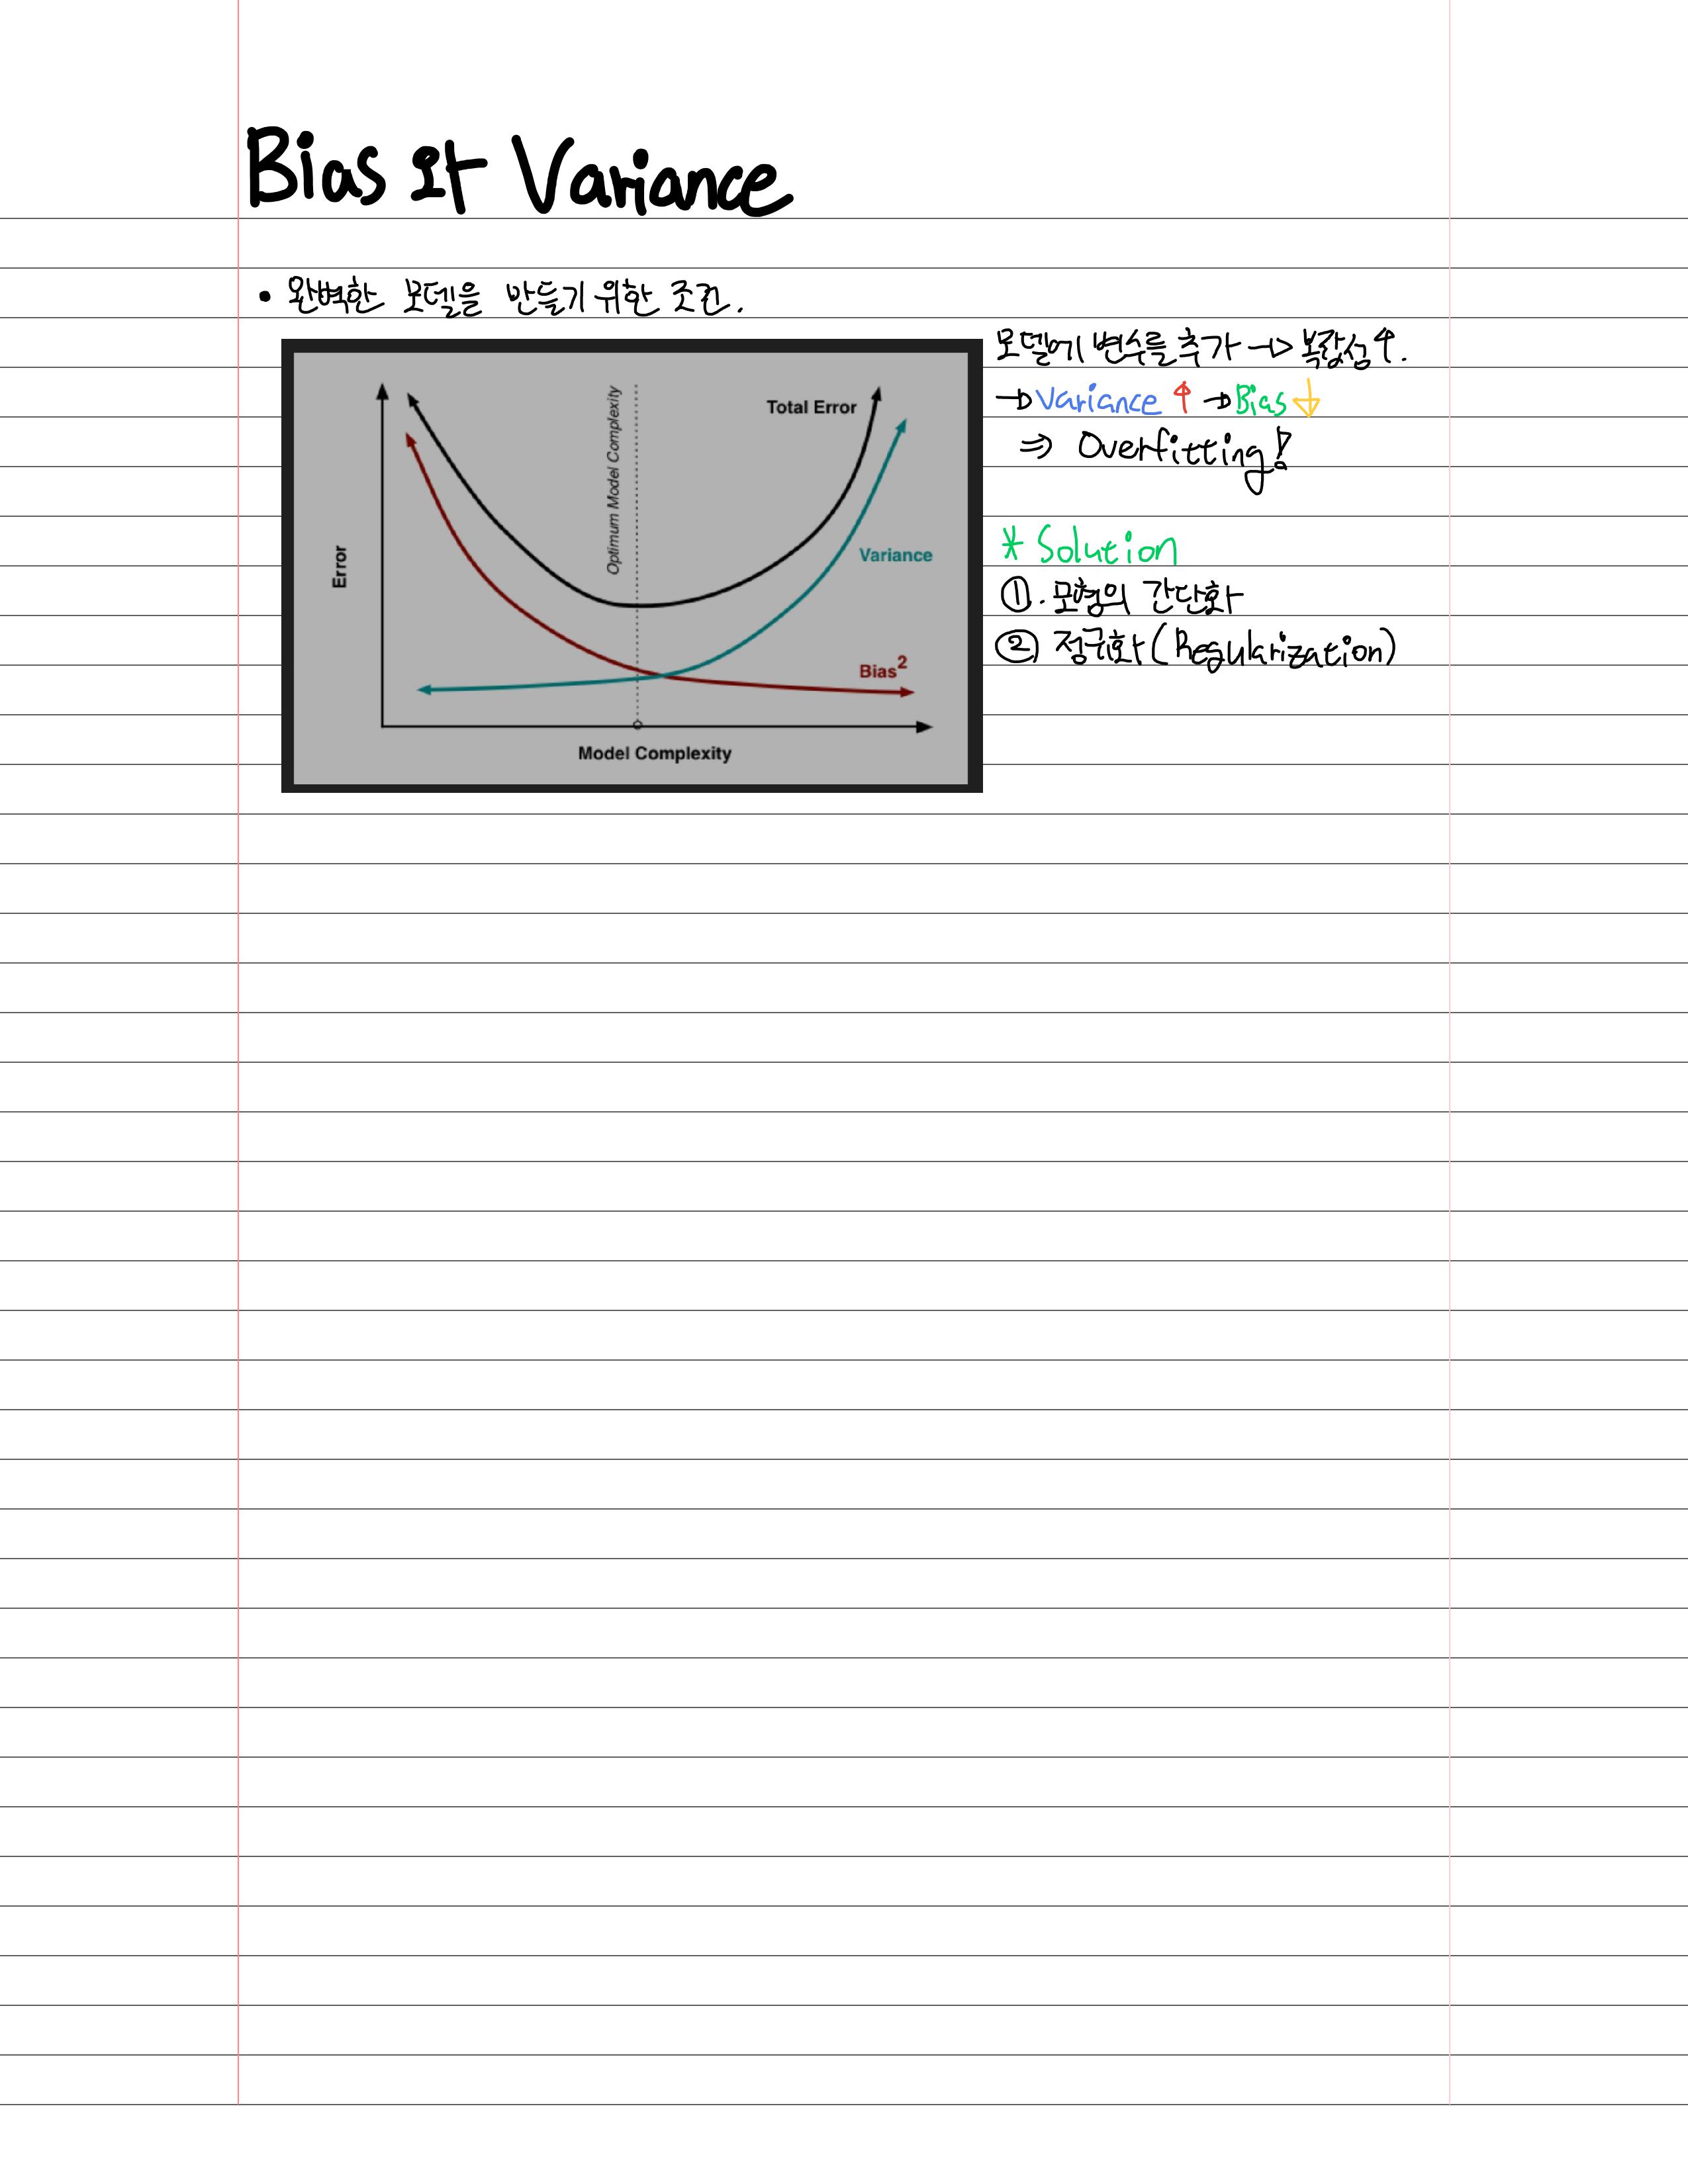 Bias와 Variance
• 완벽한 모델을 만들기 위한 조건.
Total Error
Optimum Model Complexity
Error
Variance
Bias²
Model Complexity
모델에 변수를 추가 → 복잡성↑.
→ Variance ↑ → Bias ↓
⇒ Overfitting!
* Solution
①. 모형의 간단화
② 정규화(Regularization)